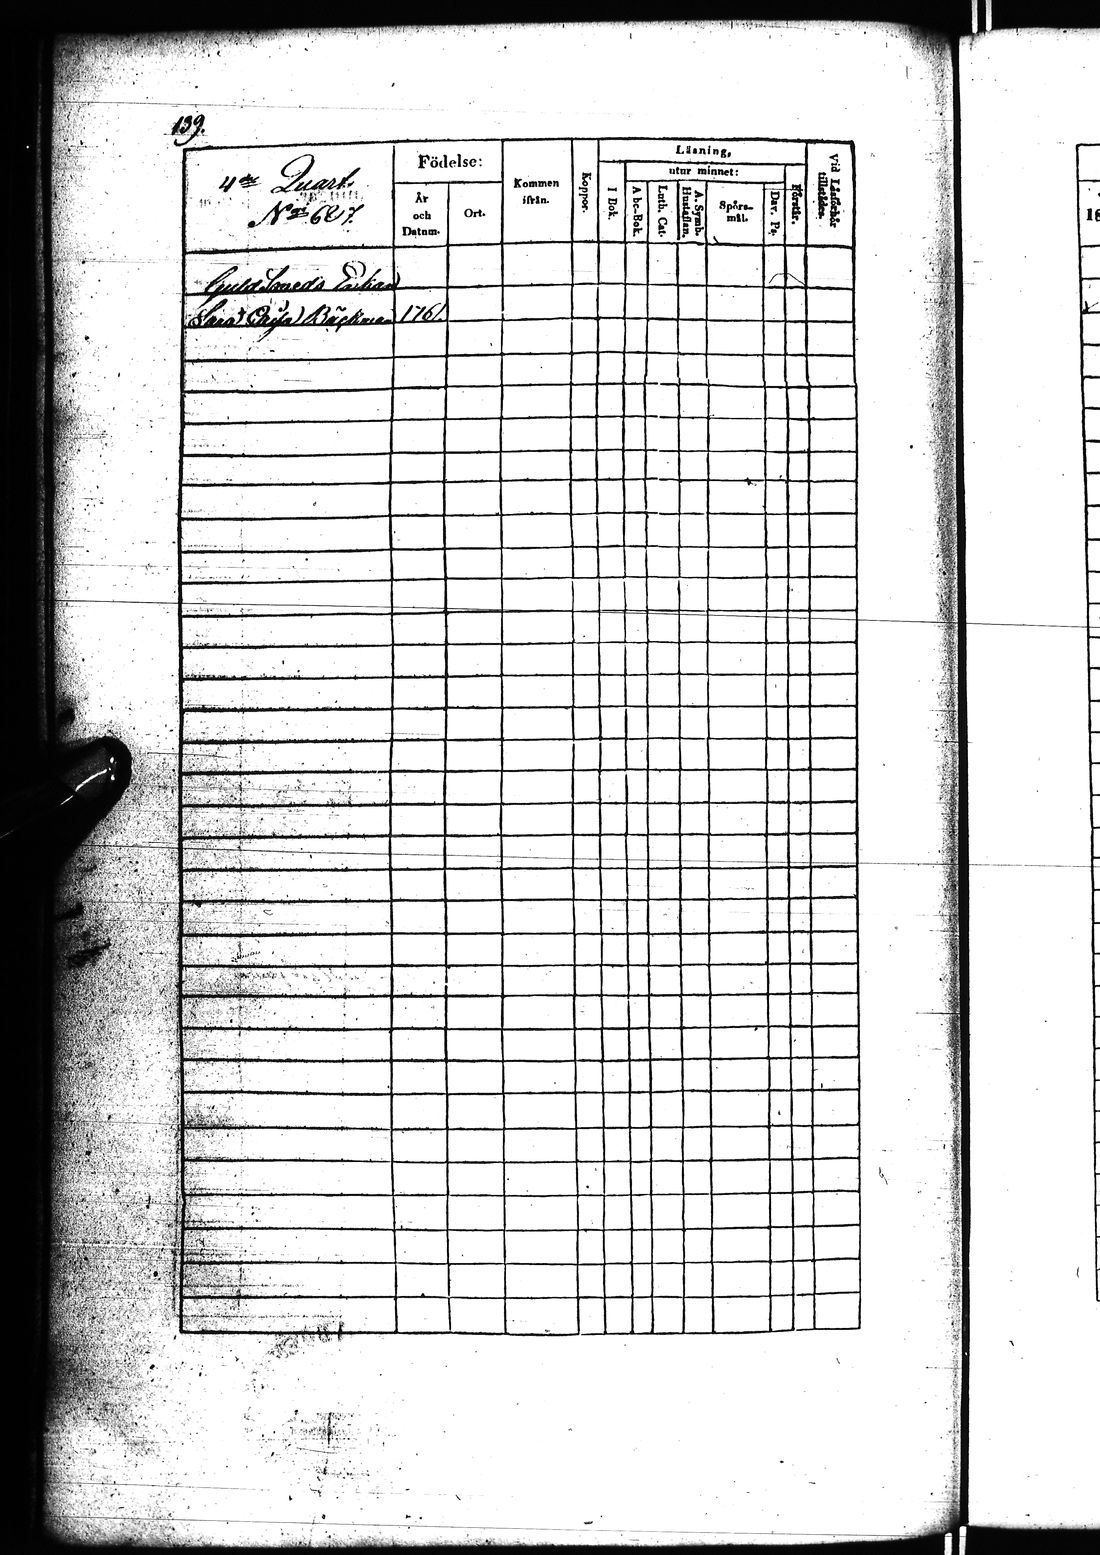 139.
4de Quart.
No 627.
Födelse:
År och Datum.
Ort.
Kommen ifrån.
Koppor.
Läsning,
utur minnet:
I Bok.
Abc-Bok.
Luth. Cat.
A. Symb. Hustaflan.
Spörs-mål.
Dav. Ps.
Förstår.
Vid Läsförhör tillstädes.
Guldsmeds Enkan
Sara Cajsa Bäckman 1761.
18